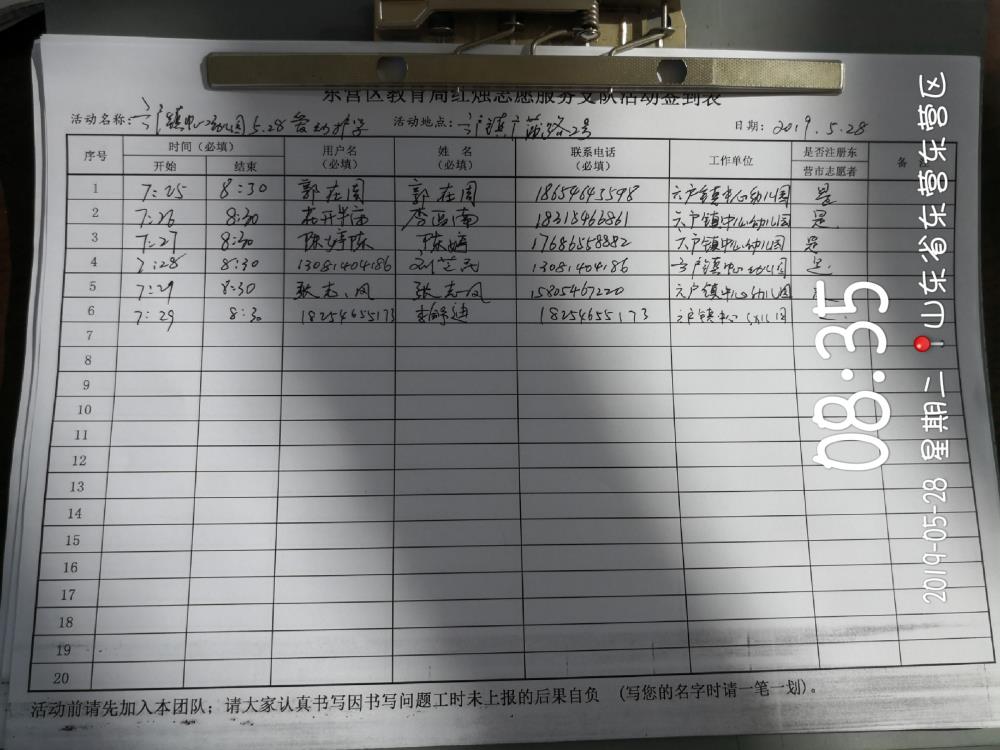 东营区教育局红烛志愿服务支队活动签到表
活动名称：六户镇中心幼儿园5.28爱幼护学 活动地点：六户镇广苑路2号 日期：2019.5.28
序号 时间（必填） 开始 结束 用户名（必填） 姓名（必填） 联系电话（必填） 工作单位 是否注册东营市志愿者 备注
1 7:25 8:30 郭在周 郭在周 18654645598 六户镇中心幼儿园 是
2 7:26 8:30 18318466861 六户镇中心幼儿园 是
3 7:27 8:30 陈婷陈 陈婷 17686558882 六户镇中心幼儿园 是
4 7:28 8:30 13081404186 13081404186 六户镇中心幼儿园 是
5 7:29 8:30 张志凤 张志凤 15805467220 六户镇中心幼儿园
6 7:29 8:30 18254655173 18254655173 六户镇中心幼儿园
7
8
9
10
11
12
13
14
15
16
17
18
19
20
活动前请先加入本团队；请大家认真书写因书写问题工时未上报的后果自负 （写您的名字时请一笔一划）。
08:35
2019-05-28 星期二 山东省东营东营区